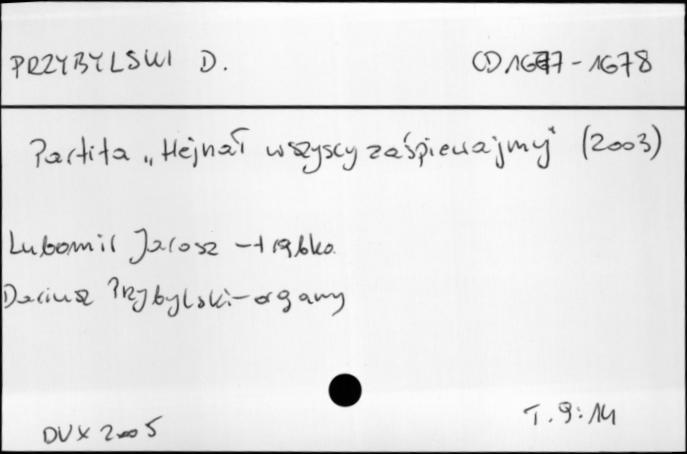 PRZYBYLSKI D. CD 1677-1678
Partita „Hejnał wszyscy zaśpiewajmy" (2003)
Lubomir Jarosz - trąbka
Dariusz Przybylski - organy
DUX 2005 T. 9:14